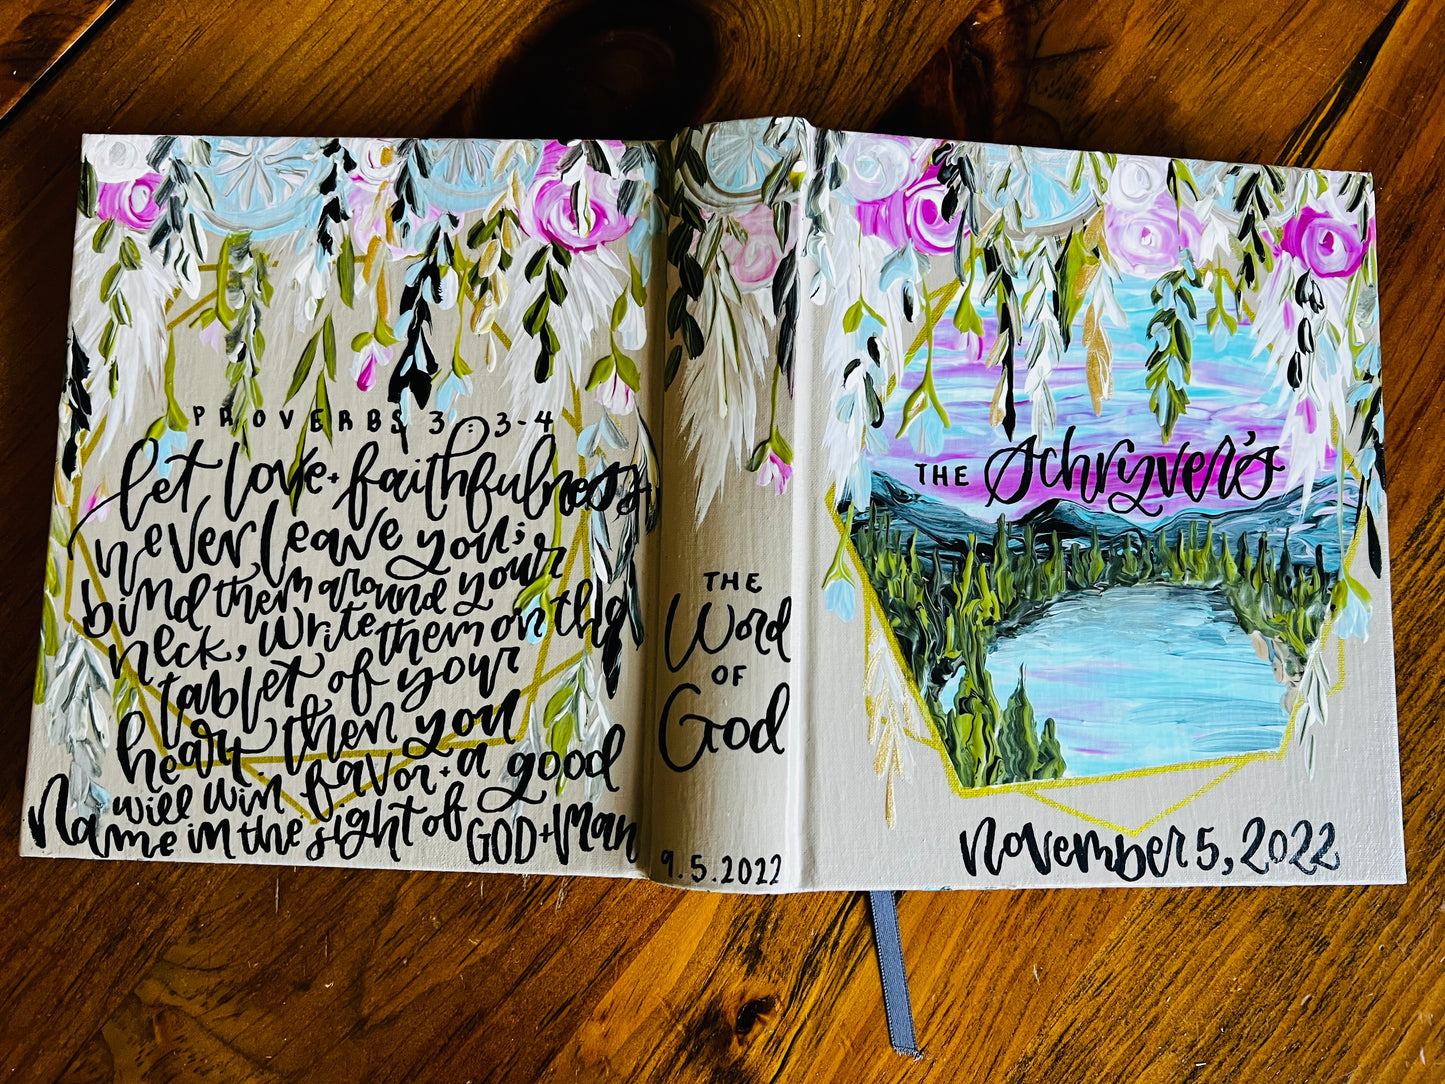 PROVERBS 3:3-4
let love + faithfulness
never leave you;
bind them around your
neck, write them on the
tablet of your
heart. then you
will win favor + a good
Name in the sight of GOD + Man
THE
Word
OF
God
9.5.2022
THE Schryver's
November 5, 2022